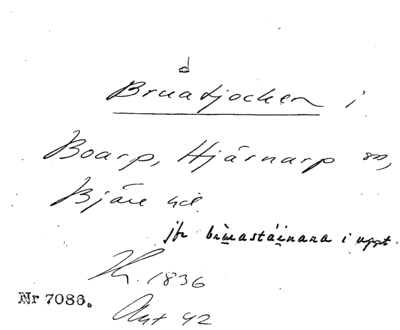 d
Bruatjocken i
Boarp, Hjärnarp sn,
Bjäre hd
jfr brùastáinana i uppt.
K. 1836
Nr 7086.
Ant 42